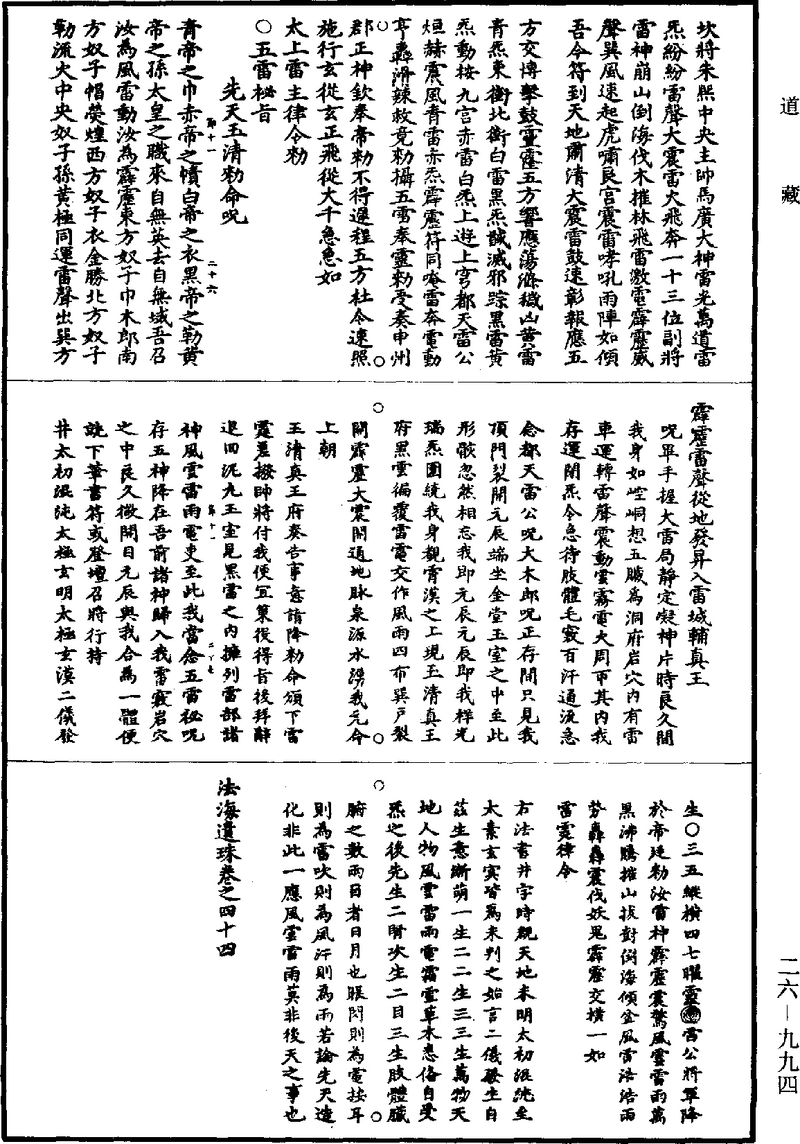 道藏
坎將朱熙中央主帥馬廣大神雷光萬道雷
炁紛紛雷聲大震雷火飛奔一十三位副將
雷神崩山倒海伐木摧林飛雷激電霹靂威
聲巽風速起虎嘯艮宮震雷哮吼雨陣如傾
吾今符到天地肅清大震雷鼓速彰報應五
方交博擊鼓靈霳五方響應蕩滌穢凶黃雷
青炁東衝北衝白雷黑炁馘滅邪踪黑雷黃
炁動按九宮赤雷白炁上遊上穹都天雷公
烜赫震風青雷赤炁霹靂符同唵雷奔電動
亨轟滑辣救竟勑攝五雷奉靈勑受奏申州
郡正神欽奉帝勑不得遲程五方社令速照
施行玄從玄正飛從大千急急如
太上雷主律令勑
○五雷秘旨
先天玉清勑命呪
青帝之巾赤帝之幘白帝之衣黑帝之勒黃
帝之孫太皇之職來自無英去自無域吾召
汝為風雷動汝為霹靂東方奴子巾木郎南
方奴子帽熒煌西方奴子衣金勝北方奴子
勒流火中央奴子孫黃極同運雷聲出巽方
霹靂雷聲從地發昇入雷城輔真王
呪畢手握大雷局靜定凝神片時良久開
我身如崆峒想五臟為洞府岩穴內有雷
車運轉雷聲震動雲霧電火周帀其內我
存運閉炁令急待肢體毛竅百汗通流急
念都天雷公呪大木郎呪正存間只見我
頂門裂開元辰端坐金堂玉室之中至此
形骸忽然相忘我即元辰元辰即我祥光
瑞炁圍繞我身觀霄漢之上現玉清真王
府黑雲徧覆雷電交作風雨四布巽戶裂
開霹靂大震開通地脉泉源水湧我元命
上朝
玉清真王府奏告事意請降勑命頒下雷
霆差撥帥將付我便宜稟復得旨後拜辭
退回泥丸玉室見黑雷之內擁列雷部諸
神風雲雷雨電吏至此我當念五雷秘呪
存五神降在吾前諸神歸入我竇竅岩穴
之中良久微開目元辰與我合為一體便
就下筆書符或登壇召將行持
井太初混沌太極玄明太極玄漠二儀發
生○三五縱橫四七曜靈雷公將軍降
於帝廷勑汝雷神霹靂震驚風雲雷雨萬
黑沸騰摧山拔對倒海傾盆風雷浩浩雨
勢轟轟震伐妖鬼霹靂交橫一如
雷霆律令
右法書井字時觀天地未明太初混沌至
太素玄冥皆為未判之始言二儀發生自
茲生意漸萌一生二二生三三生萬物天
地人物風雲雷雨電霜雪草木悉俻自受
炁之後先生二腎次生二目三生肢體臟
腑之數兩目者日月也睽閃則為電按耳
則為雷吹則為風汗則為雨若論先天造
化非此一應風雲雷雨莫非後天之事也
法海遺珠卷之四十四
二六－九九四